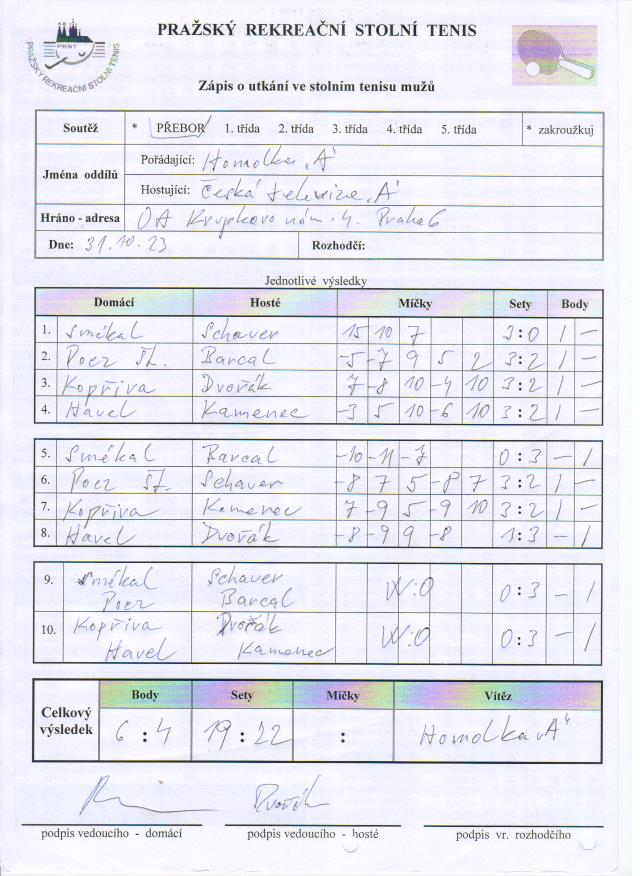 PRAŽSKÝ REKREAČNÍ STOLNÍ TENIS
PRST
PRAŽSKÝ REKREAČNÍ STOLNÍ TENIS
Zápis o utkání ve stolním tenisu mužů
Soutěž * PŘEBOR 1. třída 2. třída 3. třída 4. třída 5. třída * zakroužkuj
Jména oddílů Pořádající: Homolka „A“
Hostující: Česká televize „A“
Hráno - adresa OA Krupkovo nám. 4. Praha 6
Dne: 31.10.23 Rozhodčí:
Jednotlivé výsledky
Domácí Hosté Míčky Sety Body
1. Smékal Schaver 15 10 7 3:0 1 –
2. Pocz Št. Barcal -5 -7 9 5 2 3:2 1 –
3. Kopřiva Dvořák 7 -8 10 -4 10 3:2 1 –
4. Havel Kamenec -3 5 10 -6 10 3:2 1 –
5. Smékal Barcal -10 -11 -7 0:3 – 1
6. Pocz Št. Schaver -8 7 5 -8 7 3:2 1 –
7. Kopřiva Kamenec 7 -9 5 -9 10 3:2 1 –
8. Havel Dvořák -8 -9 9 -8 1:3 – 1
9. Smékal Schaver W:O 0:3 – 1
Pocz Barcal
10. Kopřiva Dvořák W:O 0:3 – 1
Havel Kamenec
Celkový výsledek Body Sety Míčky Vítěz
6:4 19:22 : Homolka „A“
Dvořák
podpis vedoucího - domácí podpis vedoucího - hosté podpis vr. rozhodčího